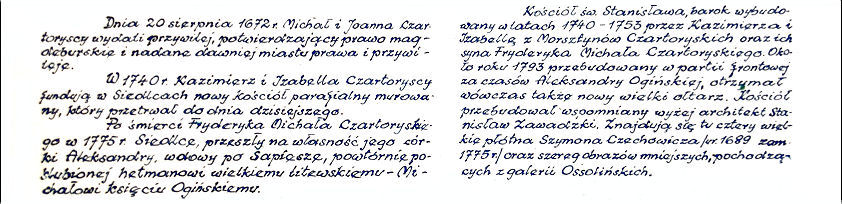 Dnia 20 sierpnia 1672 r. Michał i Joanna Czar
toryscy wydali przywilej, potwierdzający prawo mag-
deburskie i nadane dawniej miastu prawa i przywi-
leje.
W 1740 r. Kazimierz i Izabella Czartoryscy
fundują w Siedlcach nowy kościół parafialny murowa-
ny, który przetrwał do dnia dzisiejszego.
Po śmierci Fryderyka Michała Czartoryskie-
go w 1775 r. Siedlce, przeszły na własność jego cór-
ki Aleksandry, wdowy po Sapieże, powtórnie po-
ślubionej hetmanowi wielkiemu litewskiemu - Mi-
chałowi księciu Ogińskiemu.
Kościół św. Stanisława, barok wybudo-
wany w latach 1740 - 1753 przez Kazimierza i
Izabellę z Morsztynów Czartoryskich oraz ich
syna Fryderyka Michała Czartoryskiego. Oko-
ło roku 1793 przebudowany w partii frontowej
za czasów Aleksandry Ogińskiej, otrzymał
wówczas także nowy wielki ołtarz. Kościół
przebudował wspomniany wyżej architekt Sta-
nisław Zawadzki. Znajdują się tu cztery wiel-
kie płótna Szymona Czechowicza /ur. 1689 zam.
1775 r/ oraz szereg obrazów mniejszych, pochodzą-
cych z galerii Ossolińskich.